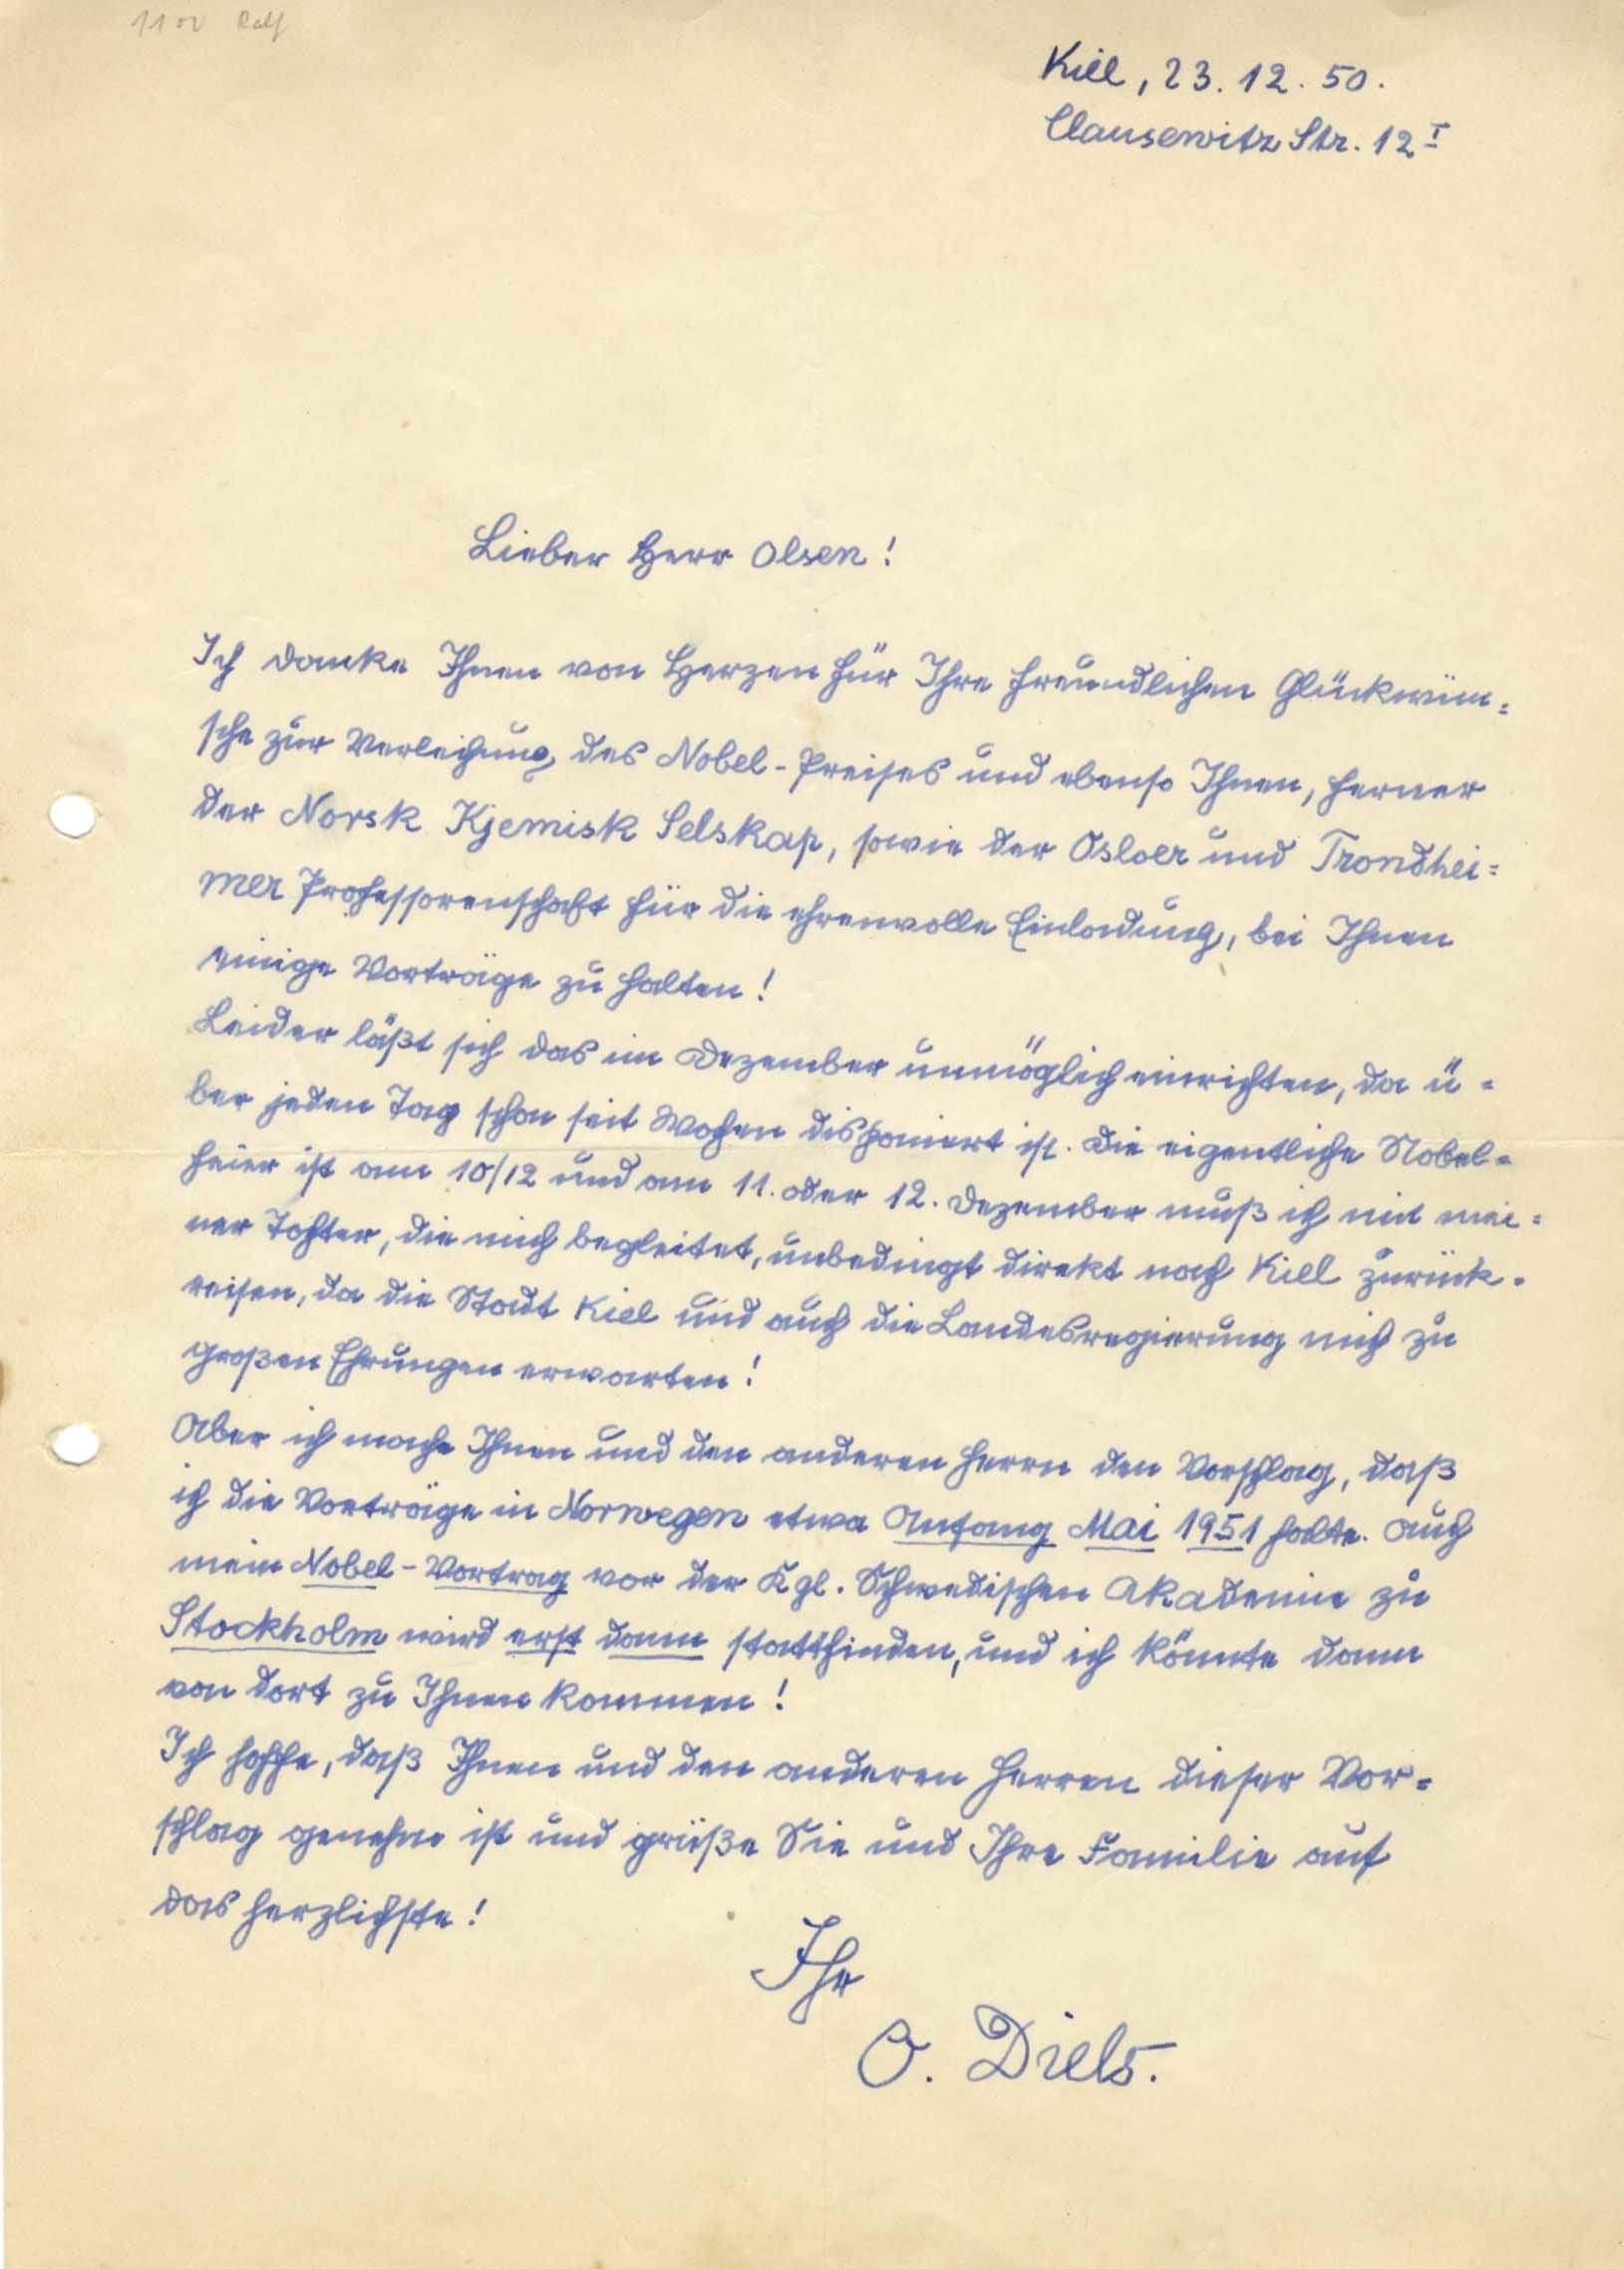 Kiel, 23. 12. 50.
Clausewitz Str. 12 I
Lieber Herr Olsen!
Ich danke Ihnen von Herzen für Ihre freundlichen Glückwün=
sche zur Verleihung des Nobel-Preises und ebenso Ihnen, ferner
der Norsk Kjemisk Selskap, sowie der Osloer und Trondhei=
mer Professorenschaft für die ehrenvolle Einladung, bei Ihnen
einige Vorträge zu halten!
Leider läßt sich das im Dezember unmöglich einrichten, da ü=
ber jeden Tag schon seit Wochen disponiert ist. Die eigentliche Nobel=
feier ist am 10/12 und am 11. oder 12. Dezember muß ich mit mei=
ner Tochter, die mich begleitet, unbedingt direkt nach Kiel zurück=
reisen, da die Stadt Kiel und auch die Landesregierung mich zu
großen Ehrungen erwarten!
Aber ich mache Ihnen und den anderen Herrn den Vorschlag, daß
ich die Vorträge in Norwegen etwa Anfang Mai 1951 halte. Auch
mein Nobel-Vortrag vor der Kgl. Schwedischen Akademie zu
Stockholm wird erst dann stattfinden, und ich könnte dann
von dort zu Ihnen kommen!
Ich hoffe, daß Ihnen und den anderen Herren dieser Vor=
schlag genehm ist und grüße Sie und Ihre Familie auf
das herzlichste!
Ihr
O. Diels.